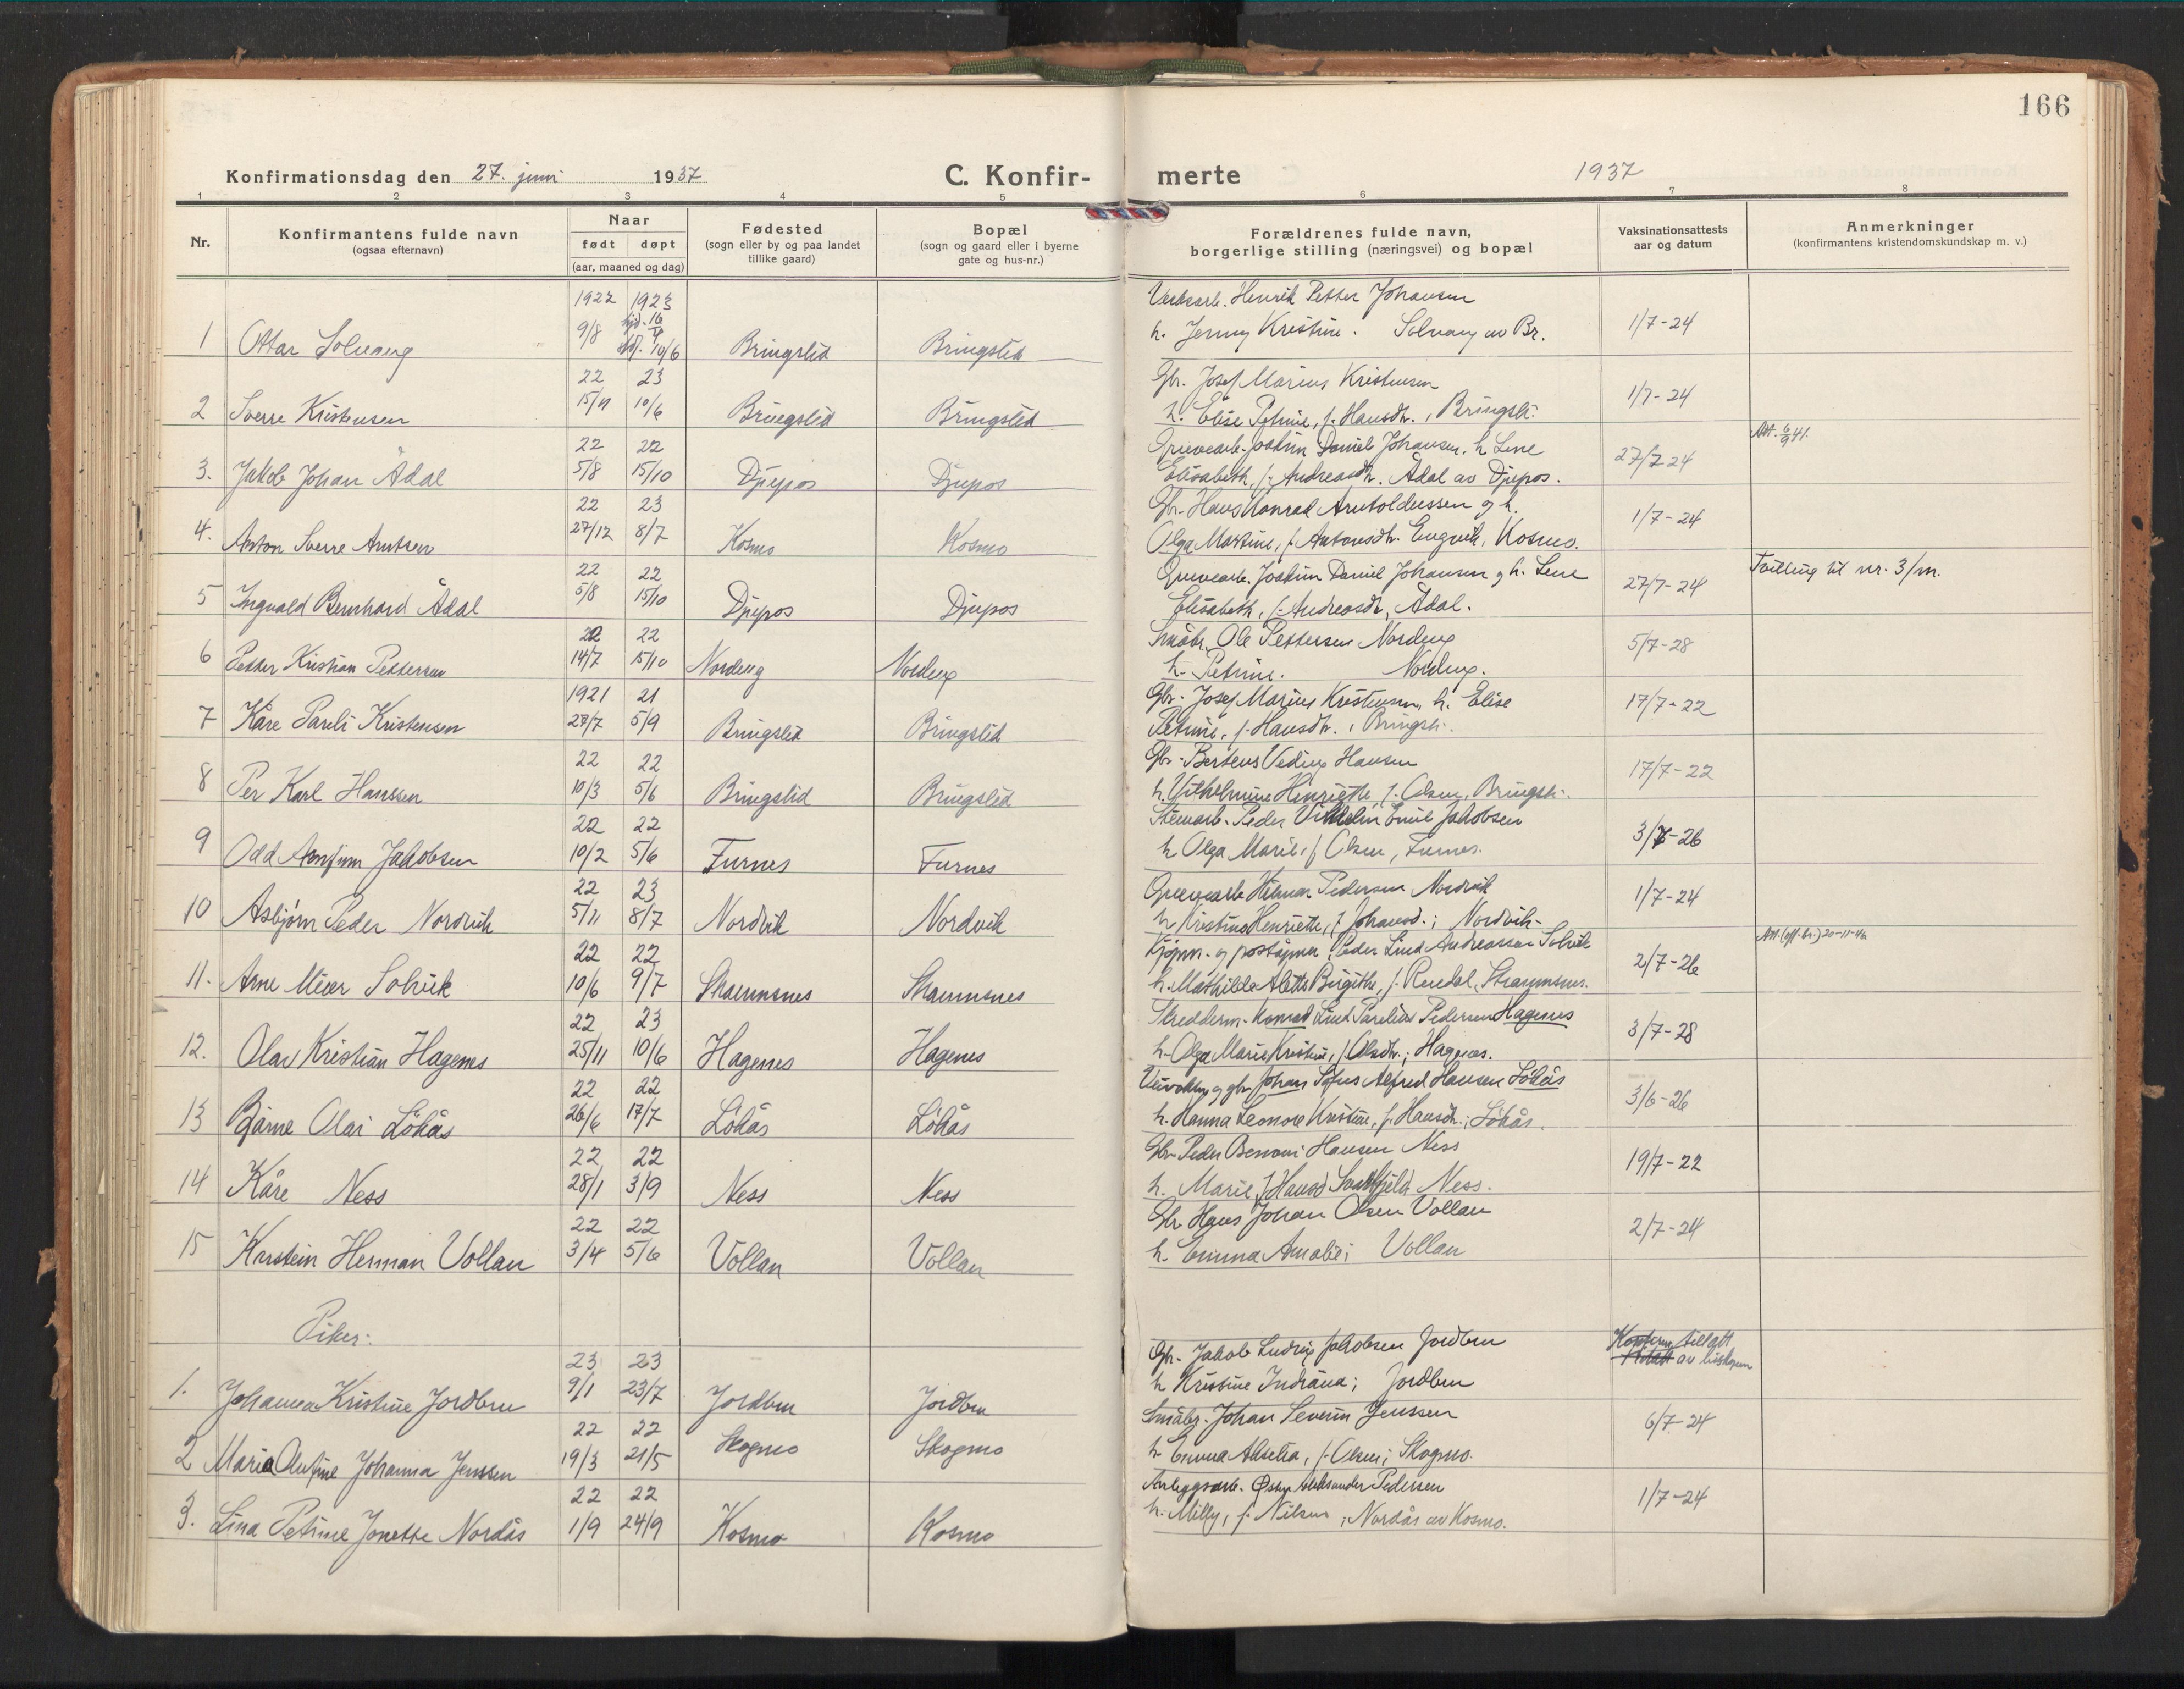 166
Konfirmationsdag den 27. juni 1937
C. Konfirmerte
1937
1 2 3 4 5 6 7 8
Nr.
Konfirmantens fulde navn
(ogsaa efternavn)
Naar
født døpt
(aar, maaned og dag)
Fødested
(sogn eller by og paa landet
tillike gaard)
Bopæl
(sogn og gaard eller i byerne
gate og hus-nr.)
Forældrenes fulde navn,
borgerlige stilling (næringsvei) og bopæl
Vaksinationsattests
aar og datum
Anmerkninger
(konfirmantens kristendomskundskap m. v.)
1922 1923 Henrik Petter Johansen
1 Ottar Solvang 9/8 10/6 Bringslid Bringslid h. Jenny Kristine. Solvang av Br. 1/7-24
22 23 Gbr. Josef Marius Kristensen
2 Sverre Kristensen 15/11 10/6 Bringslid Bringslid h. Elise Petrine, f. Hansdtr., Bringsli. 1/7-24
22 22 Gruvearb. Joakim Daniel Johansen, h Lene Att. 6/9 41.
3. Jakob Johan Ådal 5/8 15/10 Djupos Djupos Elisabeth, f. Andreasdtr. Ådal av Djupos. 27/7 24
22 23 Gbr. Hans Konrad Arntoldussen og h.
4. Anton Sverre Arntsen 27/12 8/7 Kosmo Kosmo Olga Martine, f. Antonsdtr. Engvik, Kosmo. 1/7-24
22 22 Gruvearb. Joakim Daniel Johansen og h. Lene Tvilling til nr. 3/m.
5 Ingvald Bernhard Ådal 5/8 15/10 Djupos Djupos Elisabeth, f. Andreasdtr, Ådal. 27/7-24
22 22 Småbr. Ole Pettersen Nordeng
6 Petter Kristian Pettersen 14/7 15/10 Nordeng Nordeng h. Petrine. Nordeng. 5/7-28
1921 21 Gbr. Josef Marius Kristensen, h. Elise
7 Kåre Pareli Kristensen 27/7 5/9 Bringslid Bringslid Petrine, f. Hansdtr., Bringsli. 17/7-22
22 22 Gbr. Berteus Hansen
8 Per Karl Hanssen 10/3 5/6 Bringslid Bringslid h. Vilhelmine Henriette, f. Olsen, Bringsli. 17/7-22
22 22 Stenarb. Peder Vilhelm Emil Jakobsen
9 Odd Arnfinn Jakobsen 10/2 5/6 Furnes Furnes h Olga Marie, f Olsen, Furnes. 3/7-26
22 23 Gruvearb Hilmar Pedersen Nordvik
10 Asbjørn Peder Nordvik 5/11 8/7 Nordvik Nordvik h Kristine Henriette, f Johansd.; Nordvik 1/7-24
22 22 Kjøpm. og poståpner Peder Lind Andreassen Solvik 20-11-46
11. Arne Meier Solvik 10/6 9/7 Straumsnes Straumsnes h. Mathilde Alette Birgithe, f. Rendal, Straumsnes. 2/7-26
22 23 Skredderm. Konrad Lind Parelius Pedersen Hagenes
12. Olav Kristian Hagenes 25/11 10/6 Hagenes Hagenes h. Olga Marie Kristine, f. Olsdtr.; Hagenes. 3/7-28
22 22 Veivokter og gbr Johan Sofus Alfred Hansen Lökås
13 Bjarne Olai Lökås 26/6 17/7 Lökås Lökås h. Hanna Leonore Kristine, f. Hansdtr.; Lökås. 3/6-26
22 22 Gbr. Peder Benoni Hansen Ness
14 Kåre Ness 28/1 3/9 Ness Ness h. Marie, f Hansd Ness. 19/7-22
22 22 Gbr Hans Johan Olsen Vollan
15 Krestein Herman Vollan 3/4 5/6 Vollan Vollan h. Emma Amalie; Vollan 2/7-24
Piker:
23 23 Gbr. Jakob Ludvig Jakobsen Jordbru tillatt
1. Johanna Kristine Jordbru 9/1 23/7 Jordbru Jordbru h Kristine Indiana; Jordbru av biskopen
22 22 Småbr. Johan Severin Jenssen
2 Maria Antine Johanna Jenssen 19/3 21/5 Skogmo Skogmo h Emma Akselia, f. Olsen; Skogmo. 6/7-24
22 22 Anleggsarb. Oskar Aleksander Pedersen
3. Lina Petrine Jonette Nordås 1/9 24/9 Kosmo Kosmo h. Milly, f. Nilsen; Nordås av Kosmo. 1/7-24